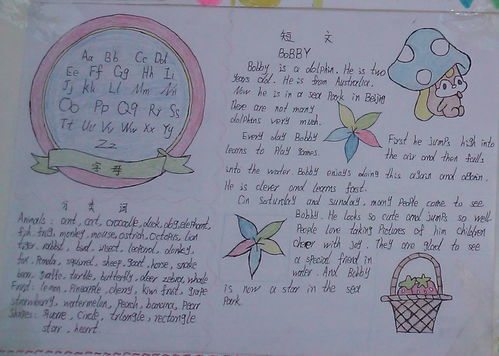 Aa Bb Cc Dd
Ee Ff Gg Hh Ii
Jj Kk Ll Mm Nn
Oo Pp Qq Rr Ss
Tt Uu Vv Ww Xx Yy
Zz
字母
分类词
Animals: ant, cat, crocodile, duck, dog, elephant,
fish, frog, monkey, mouse, ostrich, octopus, lion
tiger, rabbit, bird, insect, leopard, donkey,
fox, Panda, squirrel, sheep, goat, horse, snake
bear, giraffe, turtle, butterfly, deer, zebra, whale
Fruit: lemon, Pineapple, cherry, kiwi fruit, grape
strawberry, watermelon, Peach, banana, Pear
Shapes: square, circle, triangle, rectangle
star, heart.
短文
BOBBY
Bobby is a dolphin. He is two
years old. He is from Australia.
Now he is in a sea Park in Beijing
There are not many
dolphins very much.
Every day Bobby
learns to Play games.
First he jumps high into
the air and then falls
into the water. Bobby enjoys doing this again and again.
He is clever and learns fast.
On Saturday and sunday, many People come to see
Bobby. He looks so cute and jumps so well
People love taking Pictures of him Children
cheer with joy. They are glad to see
a special friend in
water. And Bobby
is now a star in the sea
Park.